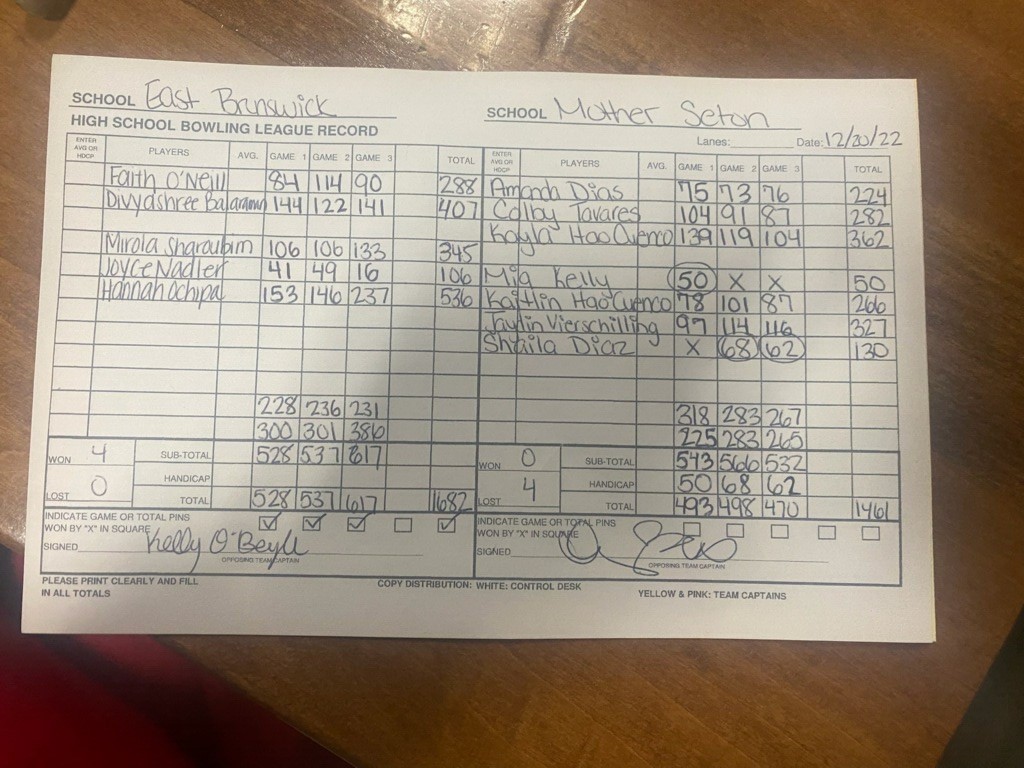 SCHOOL East Brunswick
HIGH SCHOOL BOWLING LEAGUE RECORD
ENTER AVG OR HDCP PLAYERS AVG. GAME 1 GAME 2 GAME 3 TOTAL
Faith O'Neill 84 114 90 288
Divydshree 144 122 141 407
Mirola 106 106 133 345
Joyce Nadler 41 49 16 106
Hannah Ochipa 153 146 237 536
228 236 231
300 301 386
WON 4 SUB-TOTAL 528 537 617
HANDICAP
LOST 0 TOTAL 528 537 617 1682
INDICATE GAME OR TOTAL PINS
WON BY "X" IN SQUARE
SIGNED Kelly O'Beyle
OPPOSING TEAM CAPTAIN
PLEASE PRINT CLEARLY AND FILL
IN ALL TOTALS
SCHOOL Mother Seton
Lanes: Date: 12/20/22
ENTER AVG OR HDCP PLAYERS AVG. GAME 1 GAME 2 GAME 3 TOTAL
Amanda Dias 75 73 76 224
Colby Tavares 104 91 87 282
Kayla Hao Cuenco 139 119 104 362
Mia Kelly 50 X X 50
Kaitlin Hao Cuenco 78 101 87 266
Jaylin Vierschilling 97 114 116 327
Shaila Diaz X 68 62 130
318 283 267
225 283 265
WON 0 SUB-TOTAL 543 566 532
HANDICAP 50 68 62
LOST 4 TOTAL 493 498 470 1461
INDICATE GAME OR TOTAL PINS
WON BY "X" IN SQUARE
SIGNED
OPPOSING TEAM CAPTAIN
COPY DISTRIBUTION: WHITE: CONTROL DESK
YELLOW & PINK: TEAM CAPTAINS